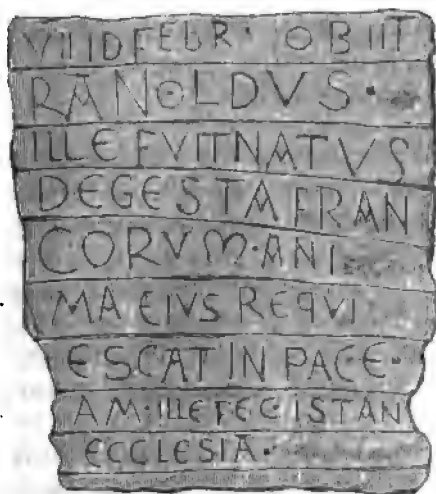 VIII D FEBR · OBIIT
RANOLDVS ·
ILLE FVIT NATVS
DE GESTA FRAN
CORVM · ANI
MA EIVS REQVI
ESCAT IN PACE ·
AM · ILLE FEC ISTAN
ECCLESIA ·